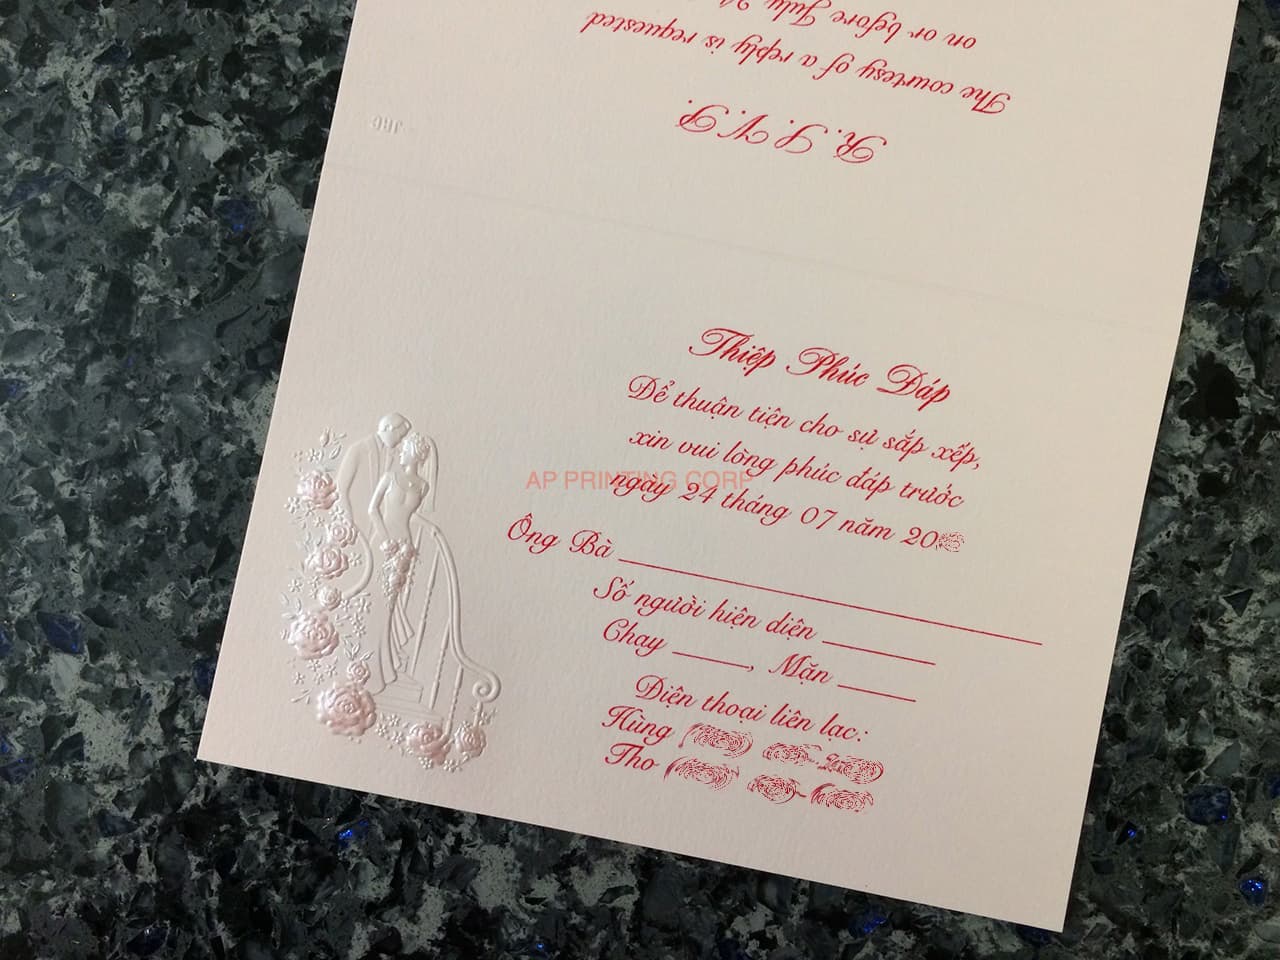 on or before July 24
The courtesy of a reply is requested
R. S. V. P.
JRC
Thiệp Phúc Đáp
Để thuận tiện cho sự sắp xếp,
xin vui lòng phúc đáp trước
AP PRINTING CORP
ngày 24 tháng 07 năm 20
Ông Bà
Số người hiện diện
Chay , Mặn
Điện thoại liên lạc:
Hùng
Tho